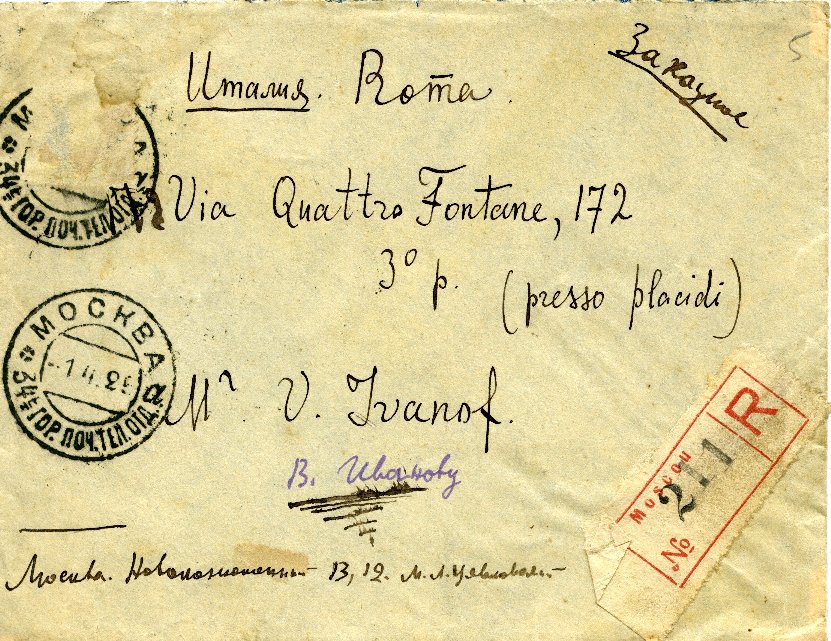 Заказное
5
Италия. Roma.
Via Quattro Fontane, 172
3º p. (presso placidi)
Mr V. Ivanof.
В. Иванову
МОСКВА
34 ГОР. ПОЧ. ТЕЛ. ОТД.
МОСКВА
-1.4.25
34 ГОР. ПОЧ. ТЕЛ. ОТД.
R
Moscou
№ 211
Москва. В, 12. М.Л.